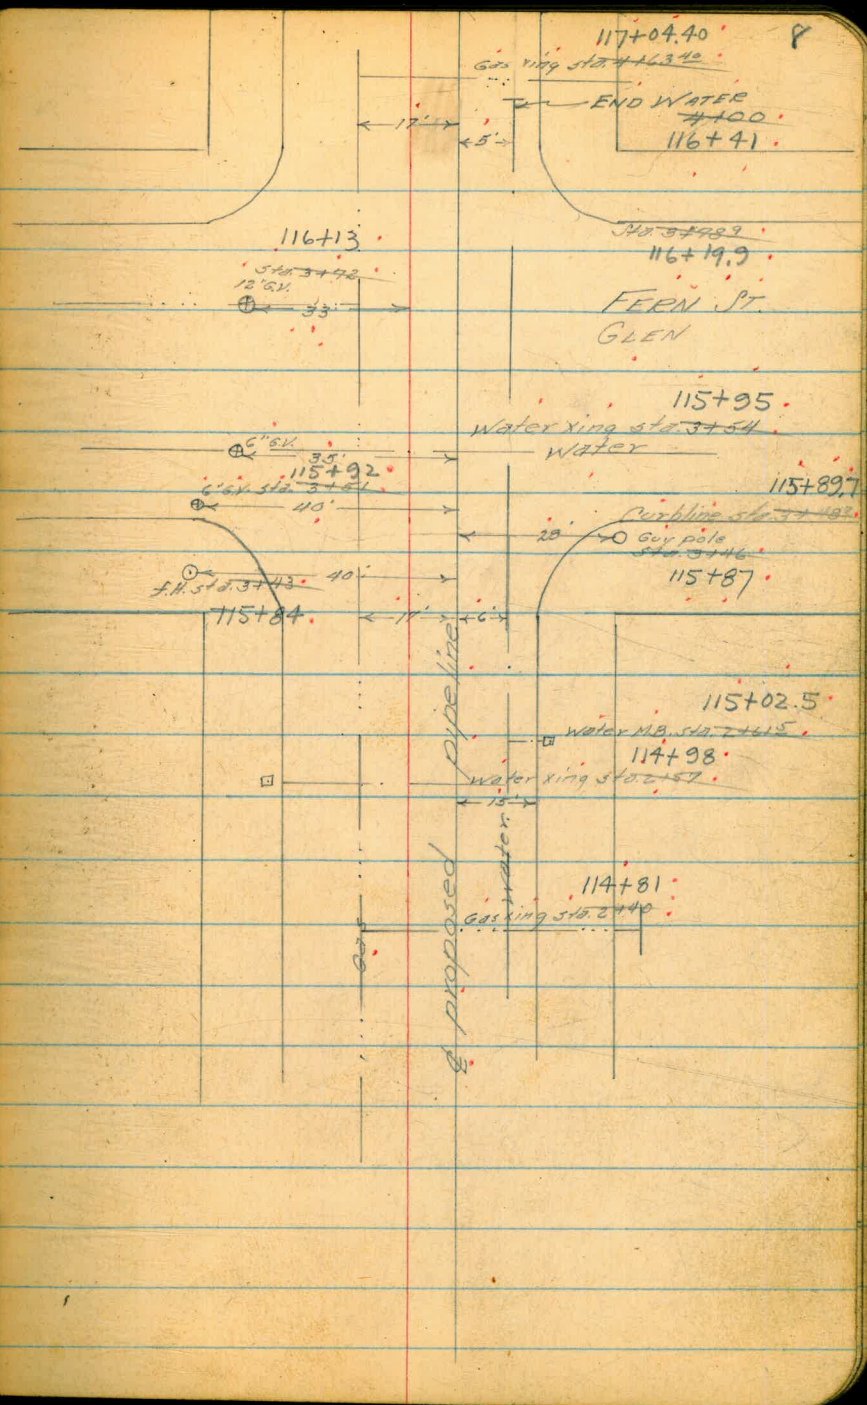 8
117+04.40
Gas xing sta. 4+63.40
END WATER
4+00
116+41
17'
5'
Sta. 3+789
116+19.9
116+13
Sta. 3+72
12" G.V.
33'
FERN ST.
GLEN
115+95
Water xing sta. 3+54
Water
6" G.V.
35'
115+92
6" G.V. sta. 3+51
40'
115+89.7
Curbline sta. 3+
28'
Guy pole
sta. 3+46
115+87
40'
f.H. sta. 3+43
115+84
17'
6'
115+02.5
Water M.B. sta. 2+61.5
114+98
Water xing sta. 2+57
15'
114+81
Gas xing sta. 2+40
Gas
Water
℄ proposed pipeline